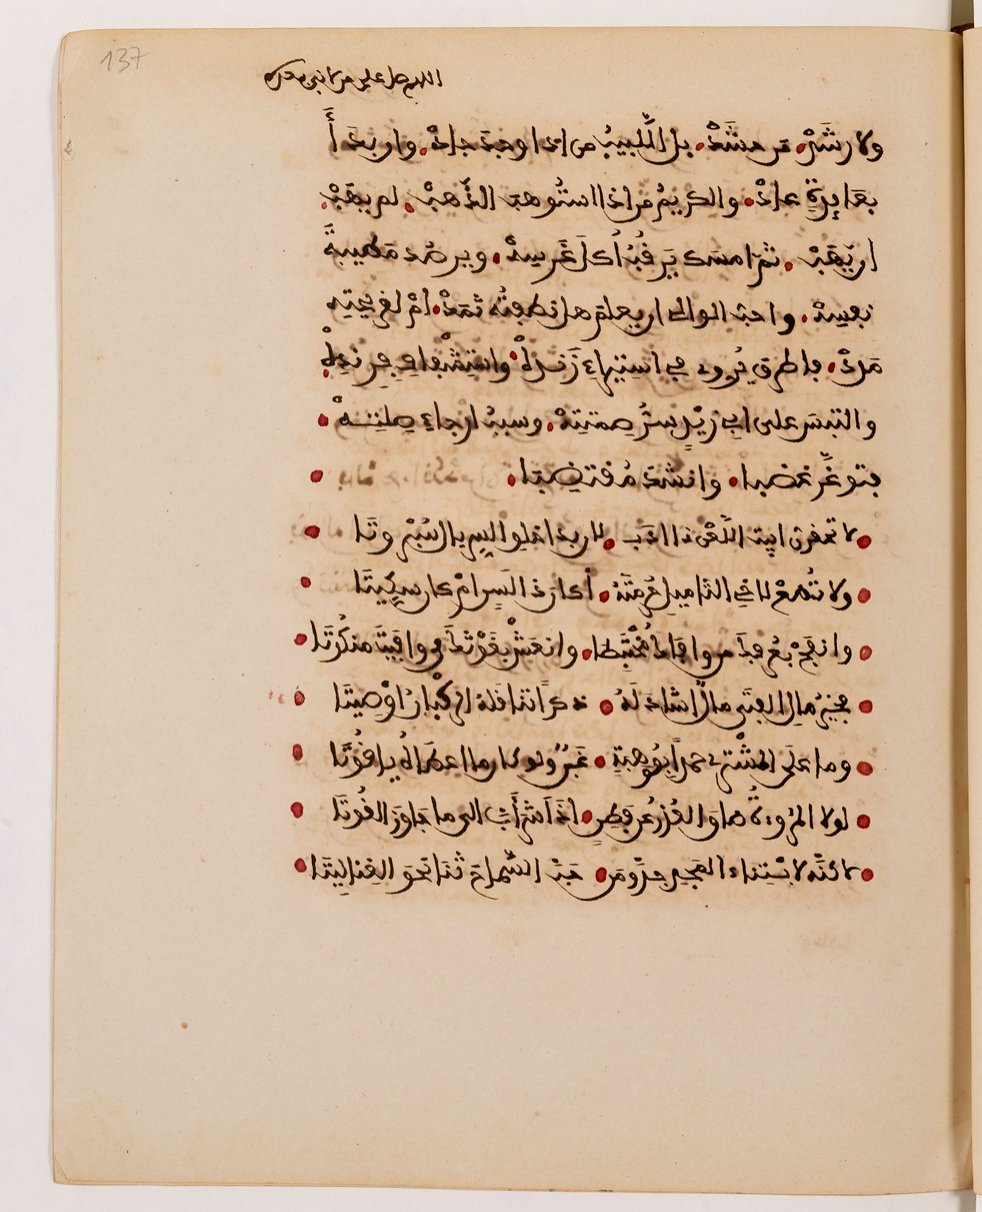 اللهم صل على
ولا رشد. من حشد. بل اللبيب من إذا وجد جاد. وإن بدأ
بعائدة عاد. والكريم من إذا استوهب الذهب. لم يهب
أن يهب. ثم أمسك يرقب أكل غرسه. ويرصد مطيبة
نفسه. وأحب الوالي أن يعلم هل نطفته ثمد. أم لقريحته
مدد. فأطرق يروي في استيراء زنده. واستشفاف فرنده
والتبس على أبي زيد سر صمتته. وسبب إرجاء صلته.
فتوغر غضبا. وأنشد مقتضبا.
لا تحقرن أبيت اللعن ذا أدب. لأن بدا خلق السربال سبروتا
ولا تضع لأخي التأميل حرمته. أكان ذا لسن أم كان سكيتا
وانفح بعرفك من وافاك مختبطا. وانعش بغوثك من وافيت منكوتا
فخير مال الفتى مال أشاد له. ذكرا تناقله الركبان أو صيتا
وما على المشتري حمدا بموهبة. غبن ولو كان ما أعطاه ياقوتا
لولا المروءة ضاق العذر عن فطن. إذا اشرأب إلى ما جاوز القوتا
لكنه لابتناء المجد جد ومن. حب السماح ثنا نحو ليتا
137